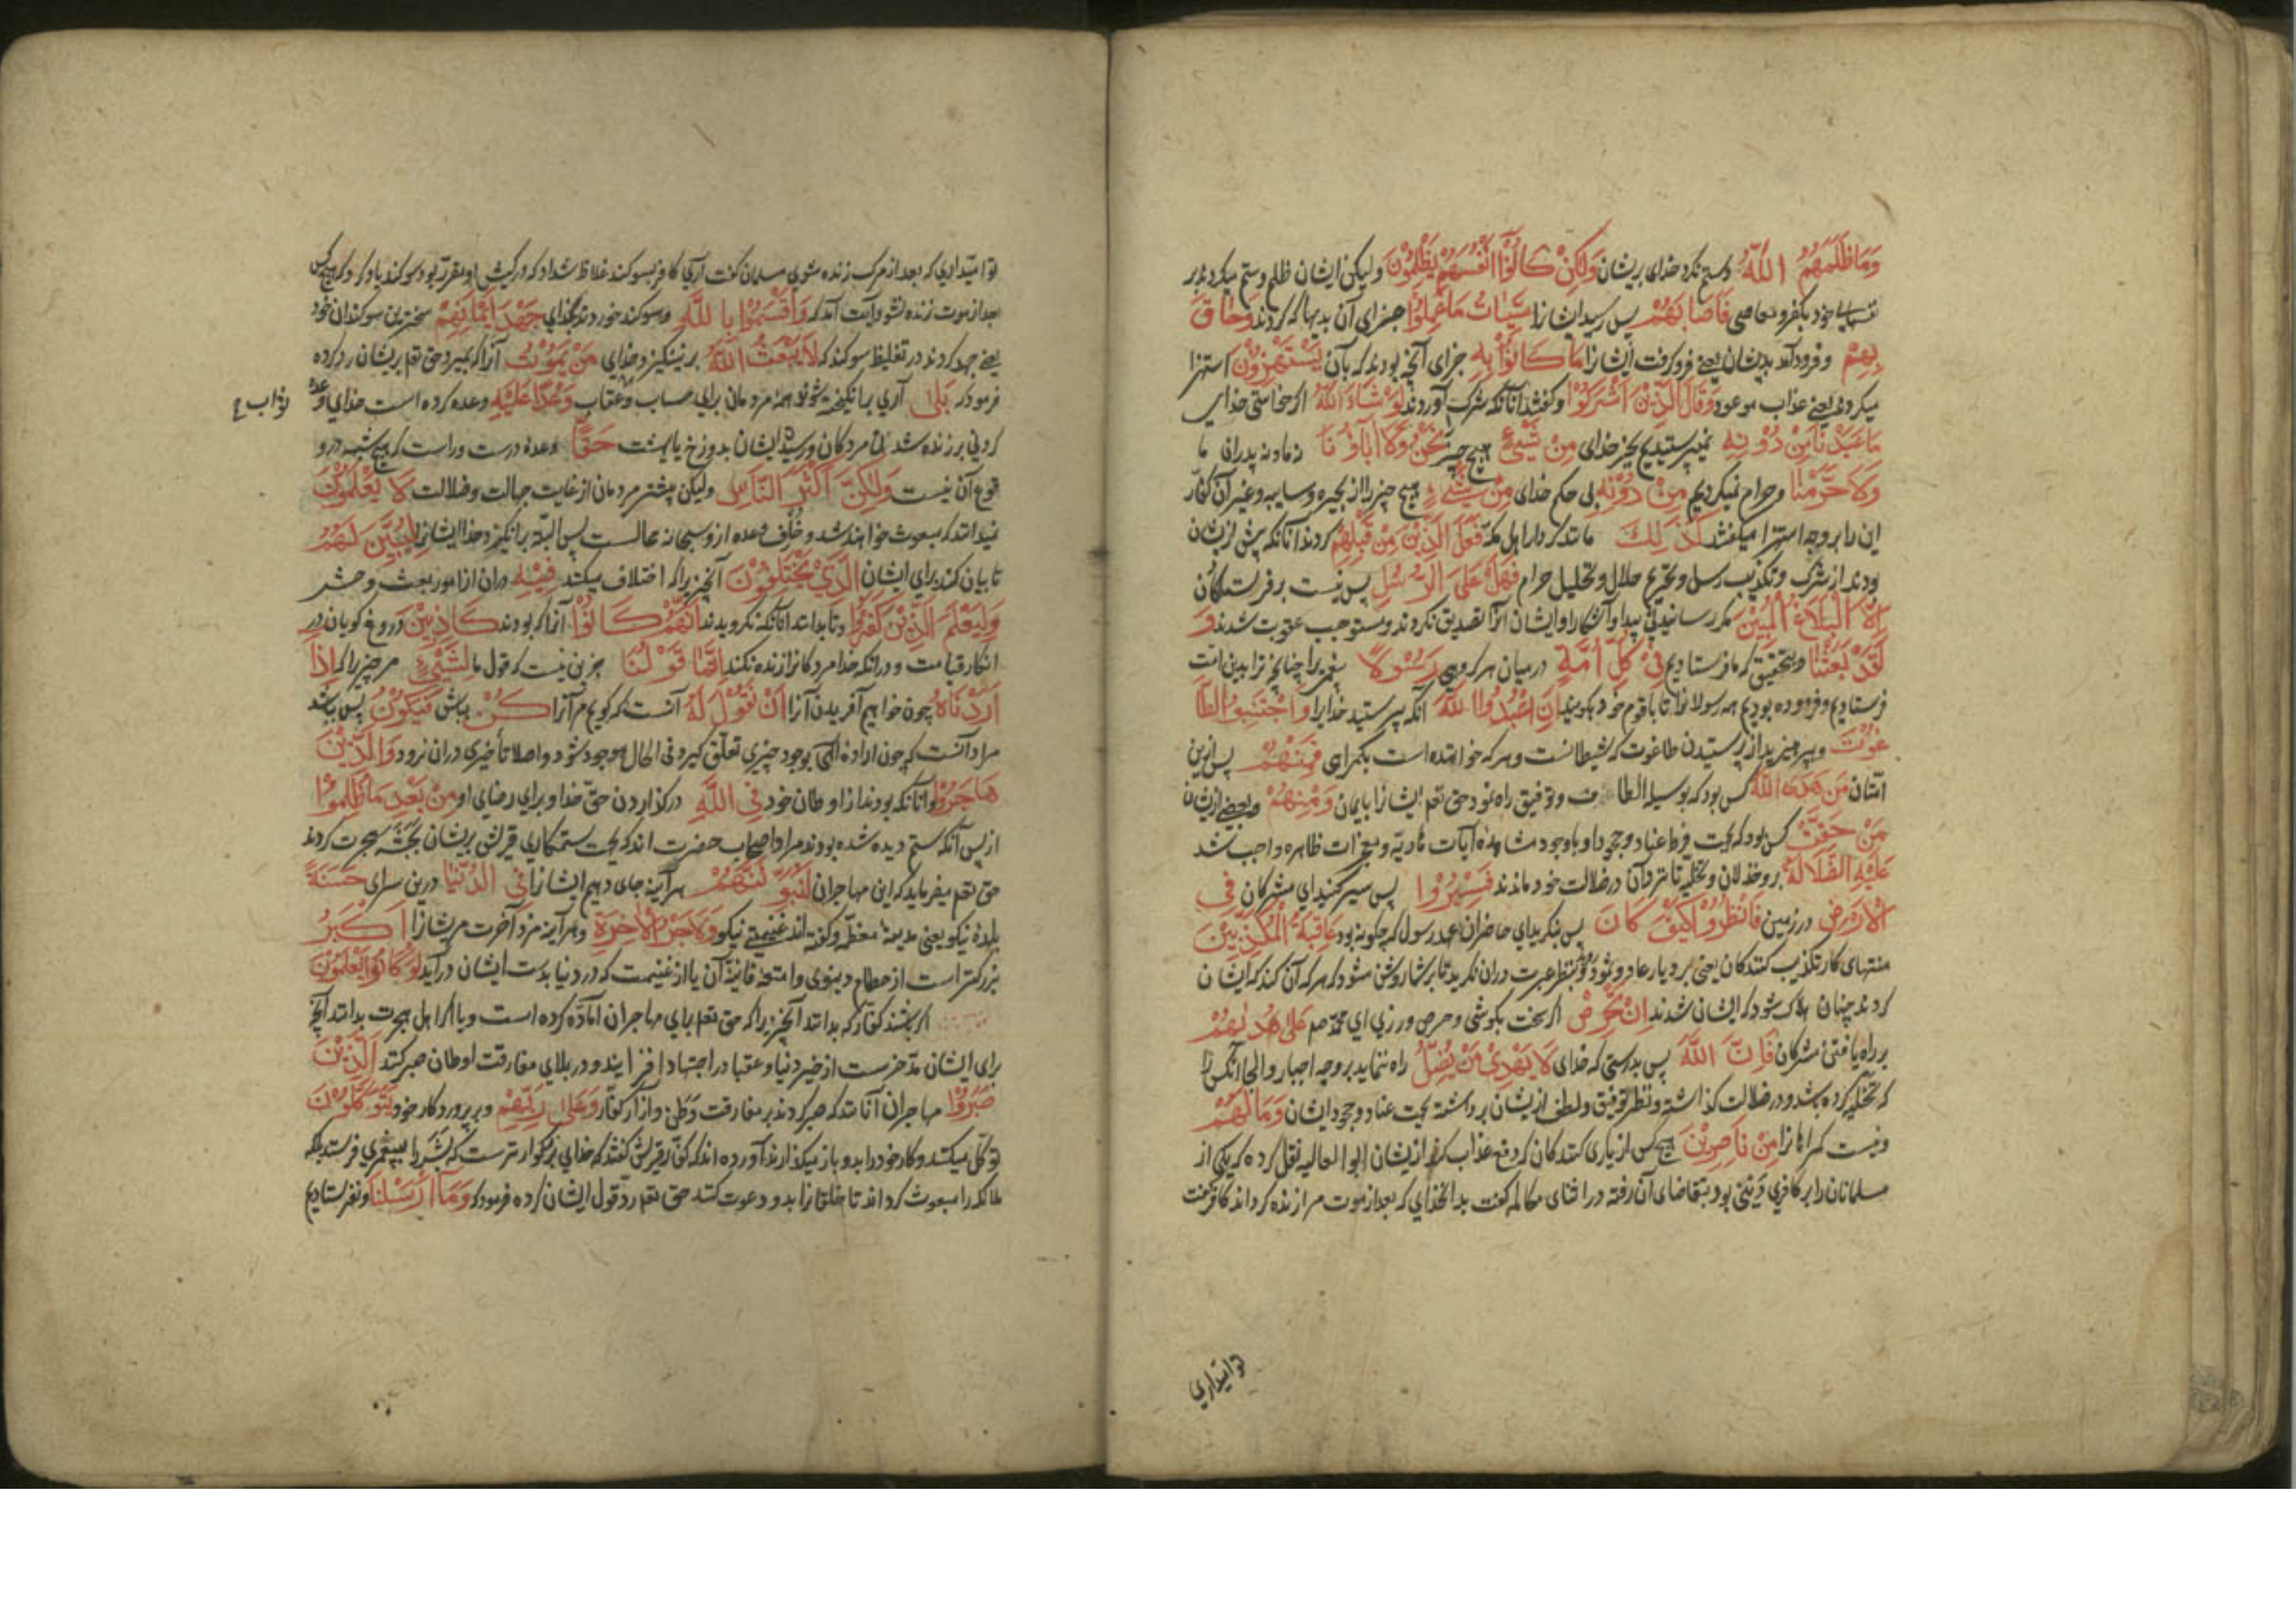 وَمَا ظَلَمَهُمُ اللَّهُ وستم نکرد خدای بریشان وَلَكِنْ كَانُوا أَنْفُسَهُمْ يَظْلِمُونَ ولیکن ایشان ظلم وستم میکردند بر
نفسهای خود بکفر ومعاصی فَأَصَابَهُمْ پس رسید ایشانرا سَيِّئَاتُ مَا عَمِلُوا جزای آن بدیها که کردند وَحَاقَ
بِهِمْ وفرود آمد بدیشان یعنے فرو کرفت ایشانرا مَا كَانُوا بِهِ جزای آنچه بودند که بآن يَسْتَهْزِؤُنَ استهزا
میکردند یعنے عذاب موعود وَقَالَ الَّذِينَ أَشْرَكُوا وکفتند آنانکه شرک آوردند لَوْ شَاءَ اللَّهُ اکر خواستی خدای
مَا عَبَدْنَا مِنْ دُونِهِ نمیپرستیدیم بجز خدای مِنْ شَيْءٍ هیچ چیز نَحْنُ وَلَا آبَاؤُنَا نه ما ونه پدران ما
وَلَا حَرَّمْنَا وحرام نمیکردیم مِنْ دُونِهِ بی حکم خدای مِنْ شَيْءٍ هیچ چیز را از بحیره وسایبه وغیر آن کفار
این را بروجه استهزا میکفتند كَذَلِكَ مانند کردار اهل مکه فَعَلَ الَّذِينَ مِنْ قَبْلِهِمْ کردند آنانکه پیش ازیشان
بودند از شرک وتکذیب رسل وتحریم حلال وتحلیل حرام فَهَلْ عَلَى الرُّسُلِ پس نیست بر فرستکان
إِلَّا الْبَلَاغُ الْمُبِينُ مکر رسانیدنی پیدا وآشکارا وایشان آنرا تصدیق نکردند ومستوجب عقوبت شدند وَ
لَقَدْ بَعَثْنَا وبتحقیق که ما فرستادیم فِي كُلِّ أُمَّةٍ درمیان هر کروهی رَسُولًا پیغمبریرا چنانچه ترا بدین امت
فرستادیم وفرموده بودیم همه رسولانرا تا باقوم خود بکویند أَنِ اعْبُدُوا اللَّهَ آنکه بپرستید خدایرا وَاجْتَنِبُوا الطَّا
غُوتَ وبپرهیزید از پرستیدن طاغوت که شیطانست وهر که خواننده است بکمراهی فَمِنْهُمْ پس ازین
امتان مَنْ هَدَى اللَّهُ کس بود که بوسیله الطاف وتوفیق راه نمود حق تعم ایشانرا بایمان وَمِنْهُمْ وبعضے ازیشان
مَنْ حَقَّتْ کس بود که بجهت فرط عناد وجحود او باوجود مشاهده آیات هادیه ومعجزات ظاهره واجب شد
عَلَيْهِ الضَّلَالَةُ برو خذلان وتخلیه تا متردآن درضلالت خود ماندند فَسِيرُوا پس سیر کنید ای مشرکان فِي
الْأَرْضِ در زمین فَانْظُرُوا كَيْفَ كَانَ پس بنکرید ای حاضران عهد رسول که چکونه بود عَاقِبَةُ الْمُكَذِّبِينَ
منتهای کار تکذیب کنندکان یعنی بر دیار عاد وثمود بنظر عبرت دران نکرید تا بر شما روشن شود که هر که آن کند که ایشان
کردند چنان هلاک شود که ایشان شدند إِنْ تَحْرِصْ اکر سخت بکوشی وحرص ورزی ای محمد صم عَلَى هُدَاهُمْ
بر راه یافتن مشرکان فَإِنَّ اللَّهَ پس بدرستی که خدای لَا يَهْدِي مَنْ يُضِلُّ راه ننماید بروجه اجبار والجا آنکس را
که تخلیه کرده باشد ودر ضلالت کذاشته ونظر توفیق ولطف ازیشان برداشته بجهت عناد وجحود ایشان وَمَا لَهُمْ
ونیست کمراهانرا مِنْ نَاصِرِينَ هیچ کس از یاری کنندکان که دفع عذاب کند ازیشان ابو العالیه نقل کرده که یکی از
مسلمانان را بر کافری دینی بود بتقاضای آن رفته دراثنای مکالمه کفت بدانخدای که بعد از موت مرا زنده کرداند کافر کفت
توامیداری
توامیداری که بعد از مرک زنده شوی مسلمان کفت آری کافر بسوکند غلاظ شداد که در کیش او مقرر بود سوکند یاد کرد که هیچکس
بعد از موت زنده نشود آیت آمد که وَأَقْسَمُوا بِاللَّهِ وسوکند خوردند بخدای جَهْدَ أَيْمَانِهِمْ سختترین سوکندان خود
یعنے جهد کردند در تغلیظ سوکند که لَا يَبْعَثُ اللَّهُ برنینکیزد خدای مَنْ يَمُوتُ آنرا که بمیرد حق تعم بریشان رد کرده
فرمود که بَلَى آری برانکیخته شوند همه مردمان برای حساب وعقاب وَعْدًا عَلَيْهِ وعده کرده است خدای وعده
وثواب ع
کردنی بر زنده شدن مردکان ورسید ایشان بدوزخ یا بهشت حَقًّا وعده درست وراست که هیچ شبهه درو
قوع آن نیست وَلَكِنَّ أَكْثَرَ النَّاسِ ولیکن بیشتر مردمان از غایت جهالت وضلالت لَا يَعْلَمُونَ
نمیدانند که مبعوث خواهند شد وخلف وعده ازو سبحانه محالست پس البته برانکیزد خدا ایشانرا لِيُبَيِّنَ لَهُمُ
تا بیان کند برای ایشان الَّذِي يَخْتَلِفُونَ آنچیزیرا که اختلاف میکنند فِيهِ دران از امور بعث وحشر
وَلِيَعْلَمَ الَّذِينَ كَفَرُوا وتا بدانند آنانکه نکرویدند أَنَّهُمْ كَانُوا آنرا که بودند كَاذِبِينَ دروغ کویان در
انکار قیامت ودرانکه خدا مردکانرا زنده نکند إِنَّمَا قَوْلُنَا جزین نیست که قول ما لِشَيْءٍ مرچیزیرا که إِذَا
أَرَدْنَاهُ چون خواهیم آفریدن آنرا أَنْ نَقُولَ لَهُ آنست که کویم مرآنرا كُنْ بباش فَيَكُونُ پس بباشد
مراد آنست که چون اراده الهی بوجود چیزی تعلق کیرد فی الحال موجود شود واصلا تأخیری دران نرود وَالَّذِينَ
هَاجَرُوا وآنانکه بودند از اوطان خود فِي اللَّهِ درکذاردن حق خدا وبرای رضای او مِنْ بَعْدِ مَا ظُلِمُوا
از پس آنکه ستم دیده شده بودند مراد اصحاب حضرت اند که بجهت ستمکاری قریش بریشان بحبشه هجرت کردند
حق تعم میفرماید که این مهاجران لَنُبَوِّئَنَّهُمْ هرآینه جای دهیم ایشانرا فِي الدُّنْيَا درین سرای حَسَنَةً
بلده نیکو یعنی مدینه معظمه وکفته اند غنیمتے نیکو وَلَأَجْرُ الْآخِرَةِ وهرآینه مزد آخرت مریشانرا أَكْبَرُ
بزرکتر است از حطام دنیوی وامتعه فانیه آن یا از غنیمت که در دنیا بدست ایشان درآید لَوْ كَانُوا يَعْلَمُونَ
اکر باشند کفار که بدانند آنچیزیرا که حق تعم برای مهاجران آماده کرده است ویا اکر اهل هجرت بدانند آنچه
برای ایشان مدخرست از خیر دنیا وعقبا در اجتهاد افزایند ودر بلای مفارقت اوطان صبر کنند الَّذِينَ
صَبَرُوا مهاجران آنانند که صبر کردند بر مفارقت وطن وآزار کفار وَعَلَى رَبِّهِمْ وبر پروردکار خود يَتَوَكَّلُونَ
توکل میکنند وکار خود را بدو باز میکذارند آورده اند که کفار قریش کفتند که خدای بزرکوارترست که بشر را بپیغمبری فرستد بلکه
ملائکه را مبعوث کرداند تا خلقانرا بدو دعوت کنند حق تعم رد قول ایشان کرده فرمود که وَمَا أَرْسَلْنَا ونفرستادیم